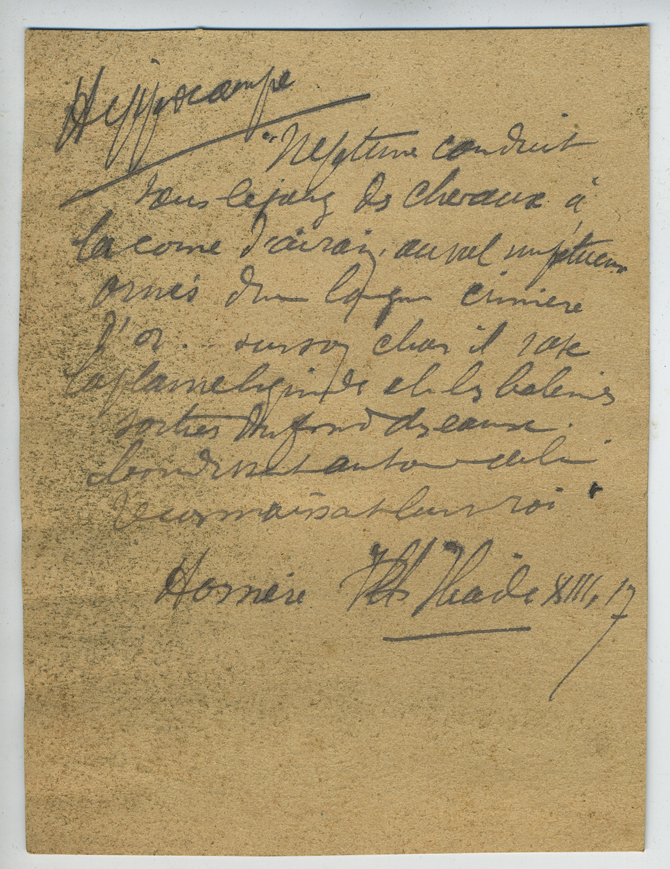 Hippocampe
"Neptune conduit
sous le joug des chevaux à
la corne d'airain, au vol impétueux
ornés d'une longue crinière
d'or.. sur son char il rase
la plaine liquide et les baleines
sorties du fond des eaux
bondissent autour de lui
reconnaissant leur roi"
Homère Iliade XIII, 17